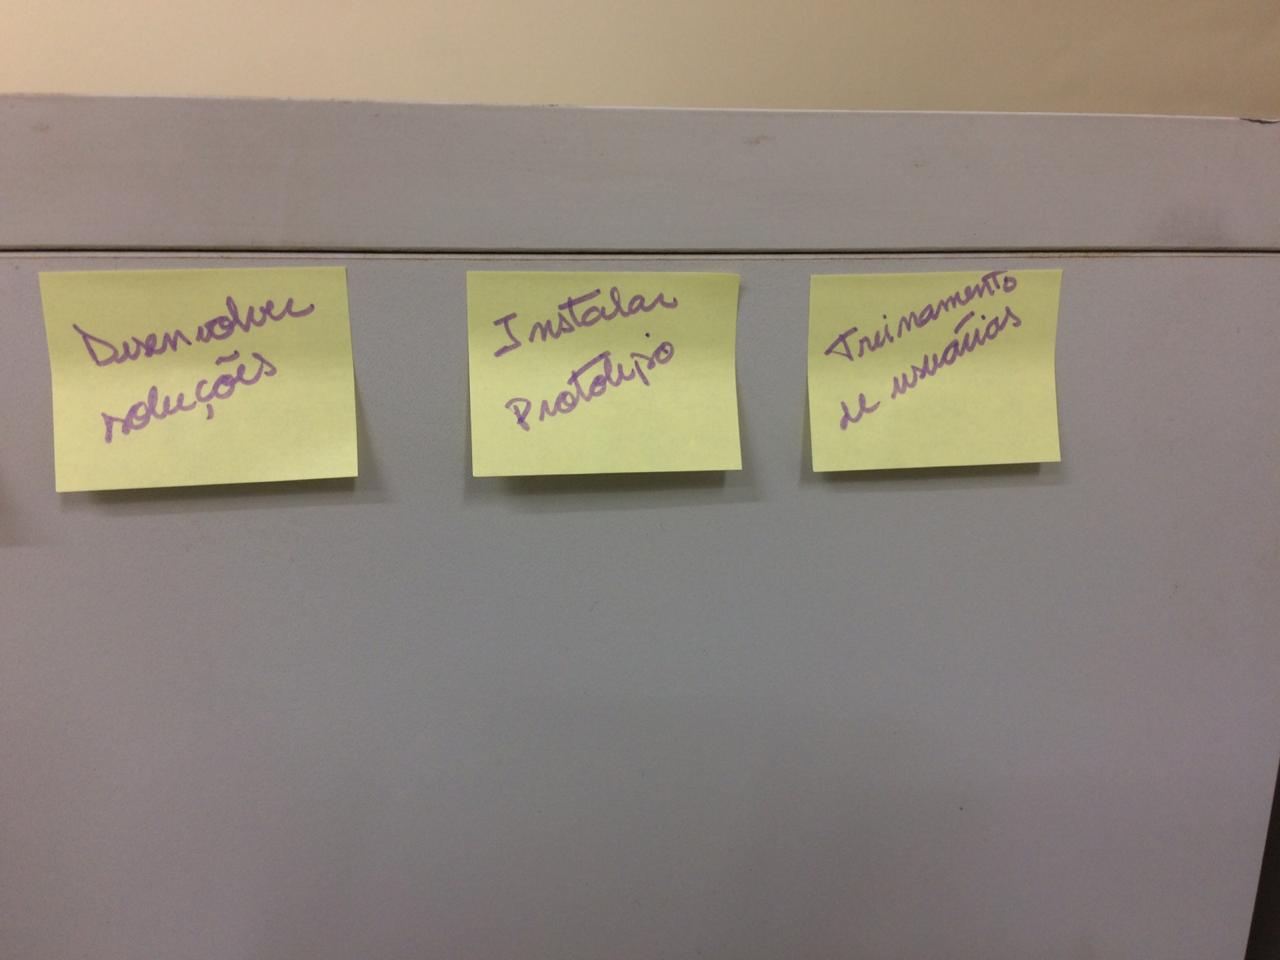 Desenvolver
soluções
Instalar
Protótipo
Treinamento
de usuários